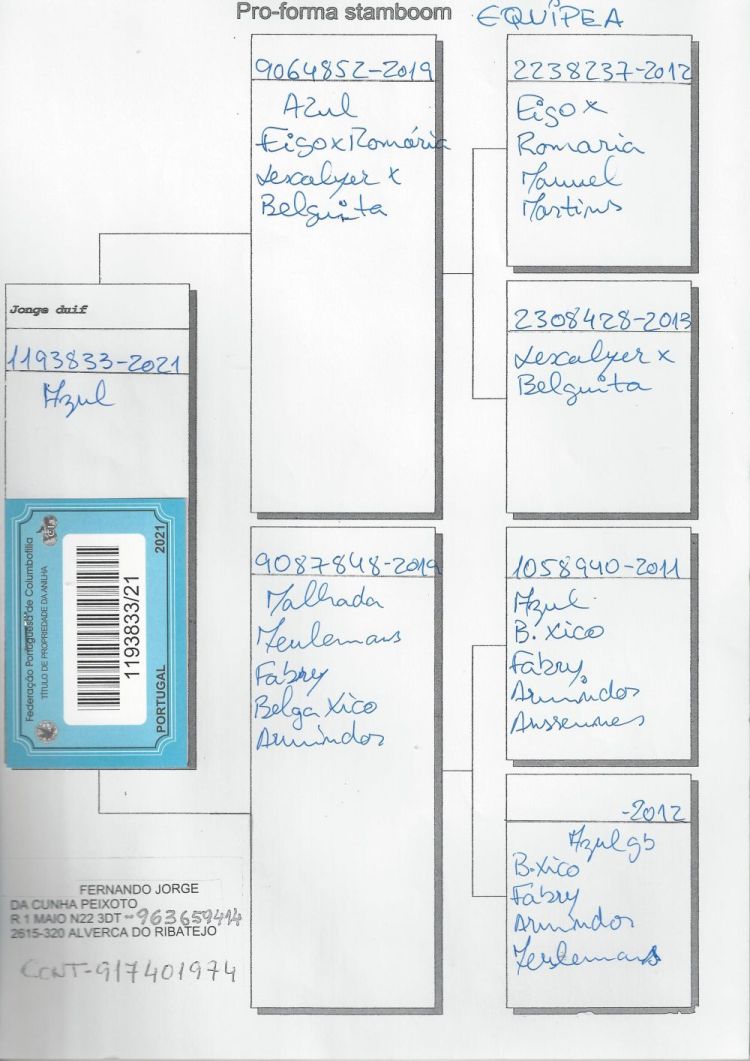 Pro-forma stamboom EQUIPEA
9064852-2019
Azul
Eigo x Romária
Lexalyer x
Belguinta
2238237-2012
Eigo x
Romaria
Manuel
Martins
2308428-2013
Lexalyer x
Belguinta
Jonge duif
1193833-2021
Azul
Federação Portuguesa de Columbofilia
TÍTULO DE PROPRIEDADE DA ANILHA
1193833/21
PORTUGAL 2021
9087848-2019
Malhada
Meulemans
Fabry
Belga Xico
Armindos
1058940-2011
Azul
B. Xico
Fabry
Armindos
Ansseumes
-2012
Azul gb
B. Xico
Fabry
Armindos
Meulemans
FERNANDO JORGE
DA CUNHA PEIXOTO
R 1 MAIO N22 3DT - 963659414
2615-320 ALVERCA DO RIBATEJO
CONT-917401974